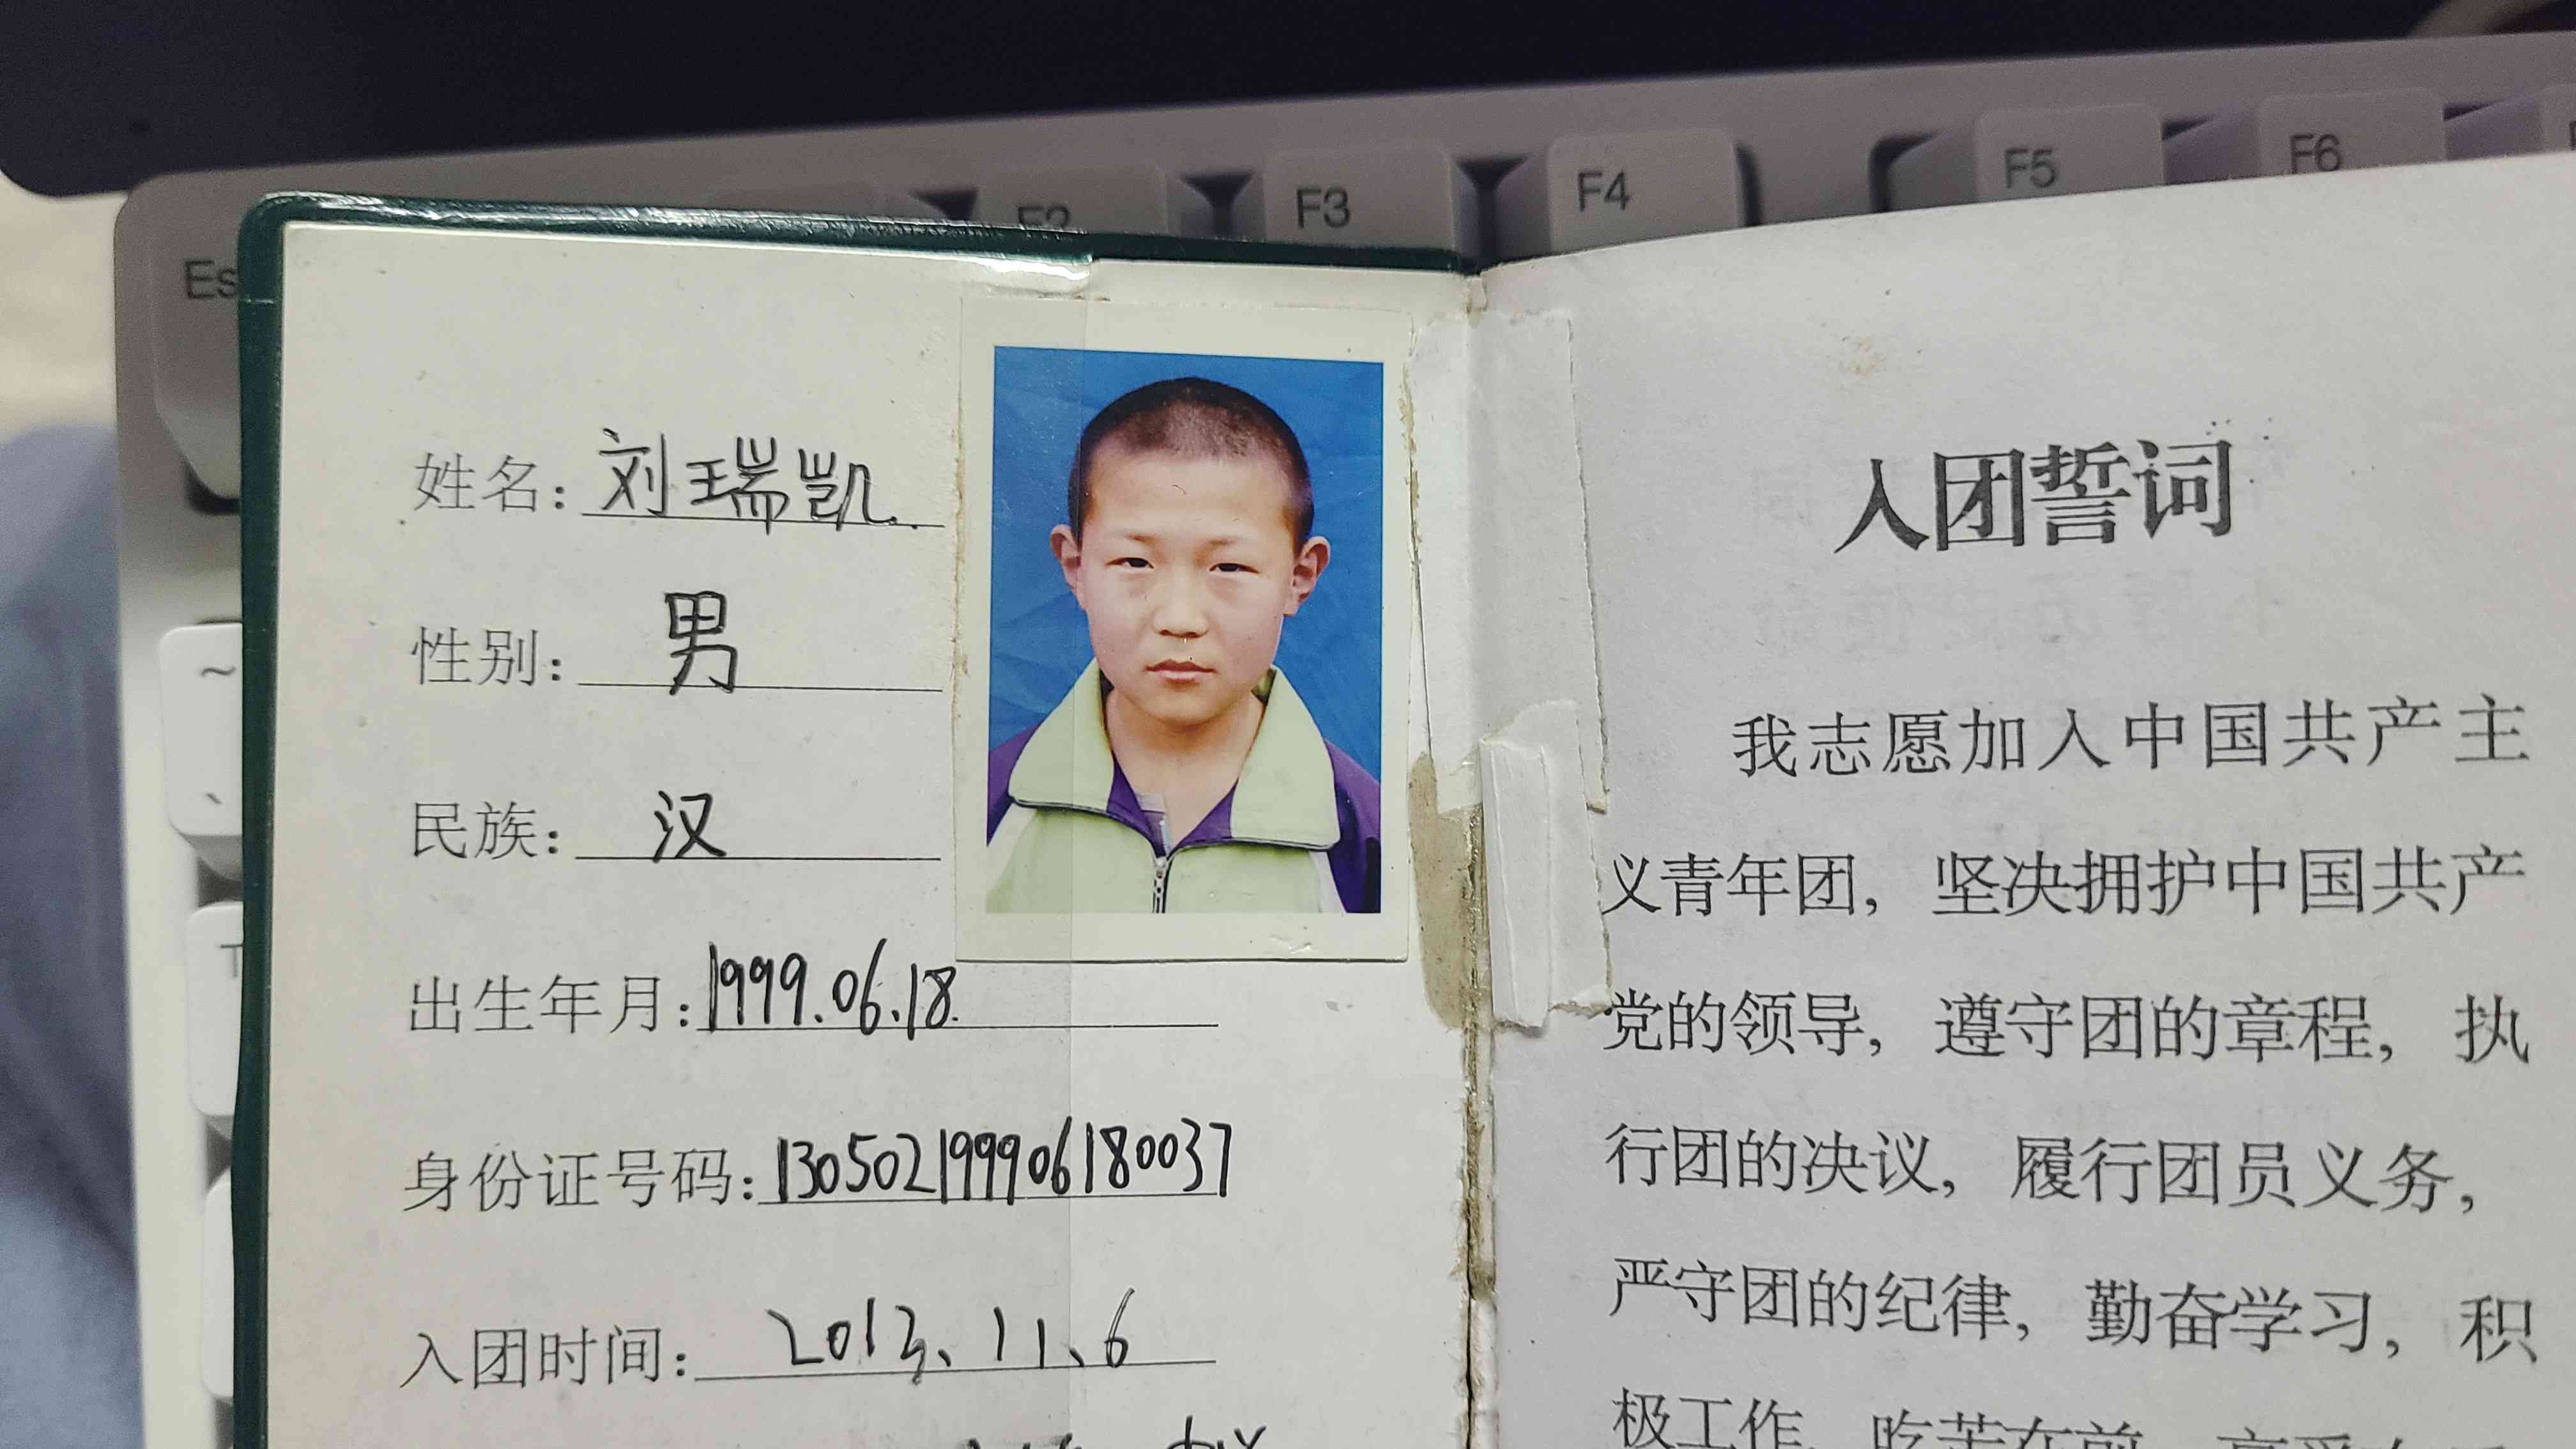 姓名：刘瑞凯
性别：男
民族：汉
出生年月：1999.06.18
身份证号码：130502199906180031
入团时间：2013、11、6
入团誓词
我志愿加入中国共产主
义青年团，坚决拥护中国共产
党的领导，遵守团的章程，执
行团的决议，履行团员义务，
严守团的纪律，勤奋学习，积
极工作
Es
~
F3
F4
F5
F6